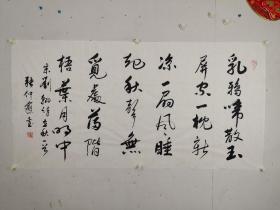 乳鴉啼散玉
屏空一枕新
凉一扇風睡
起秋聲無
覓處滿階
梧葉月明中
宋劉翰詩立秋